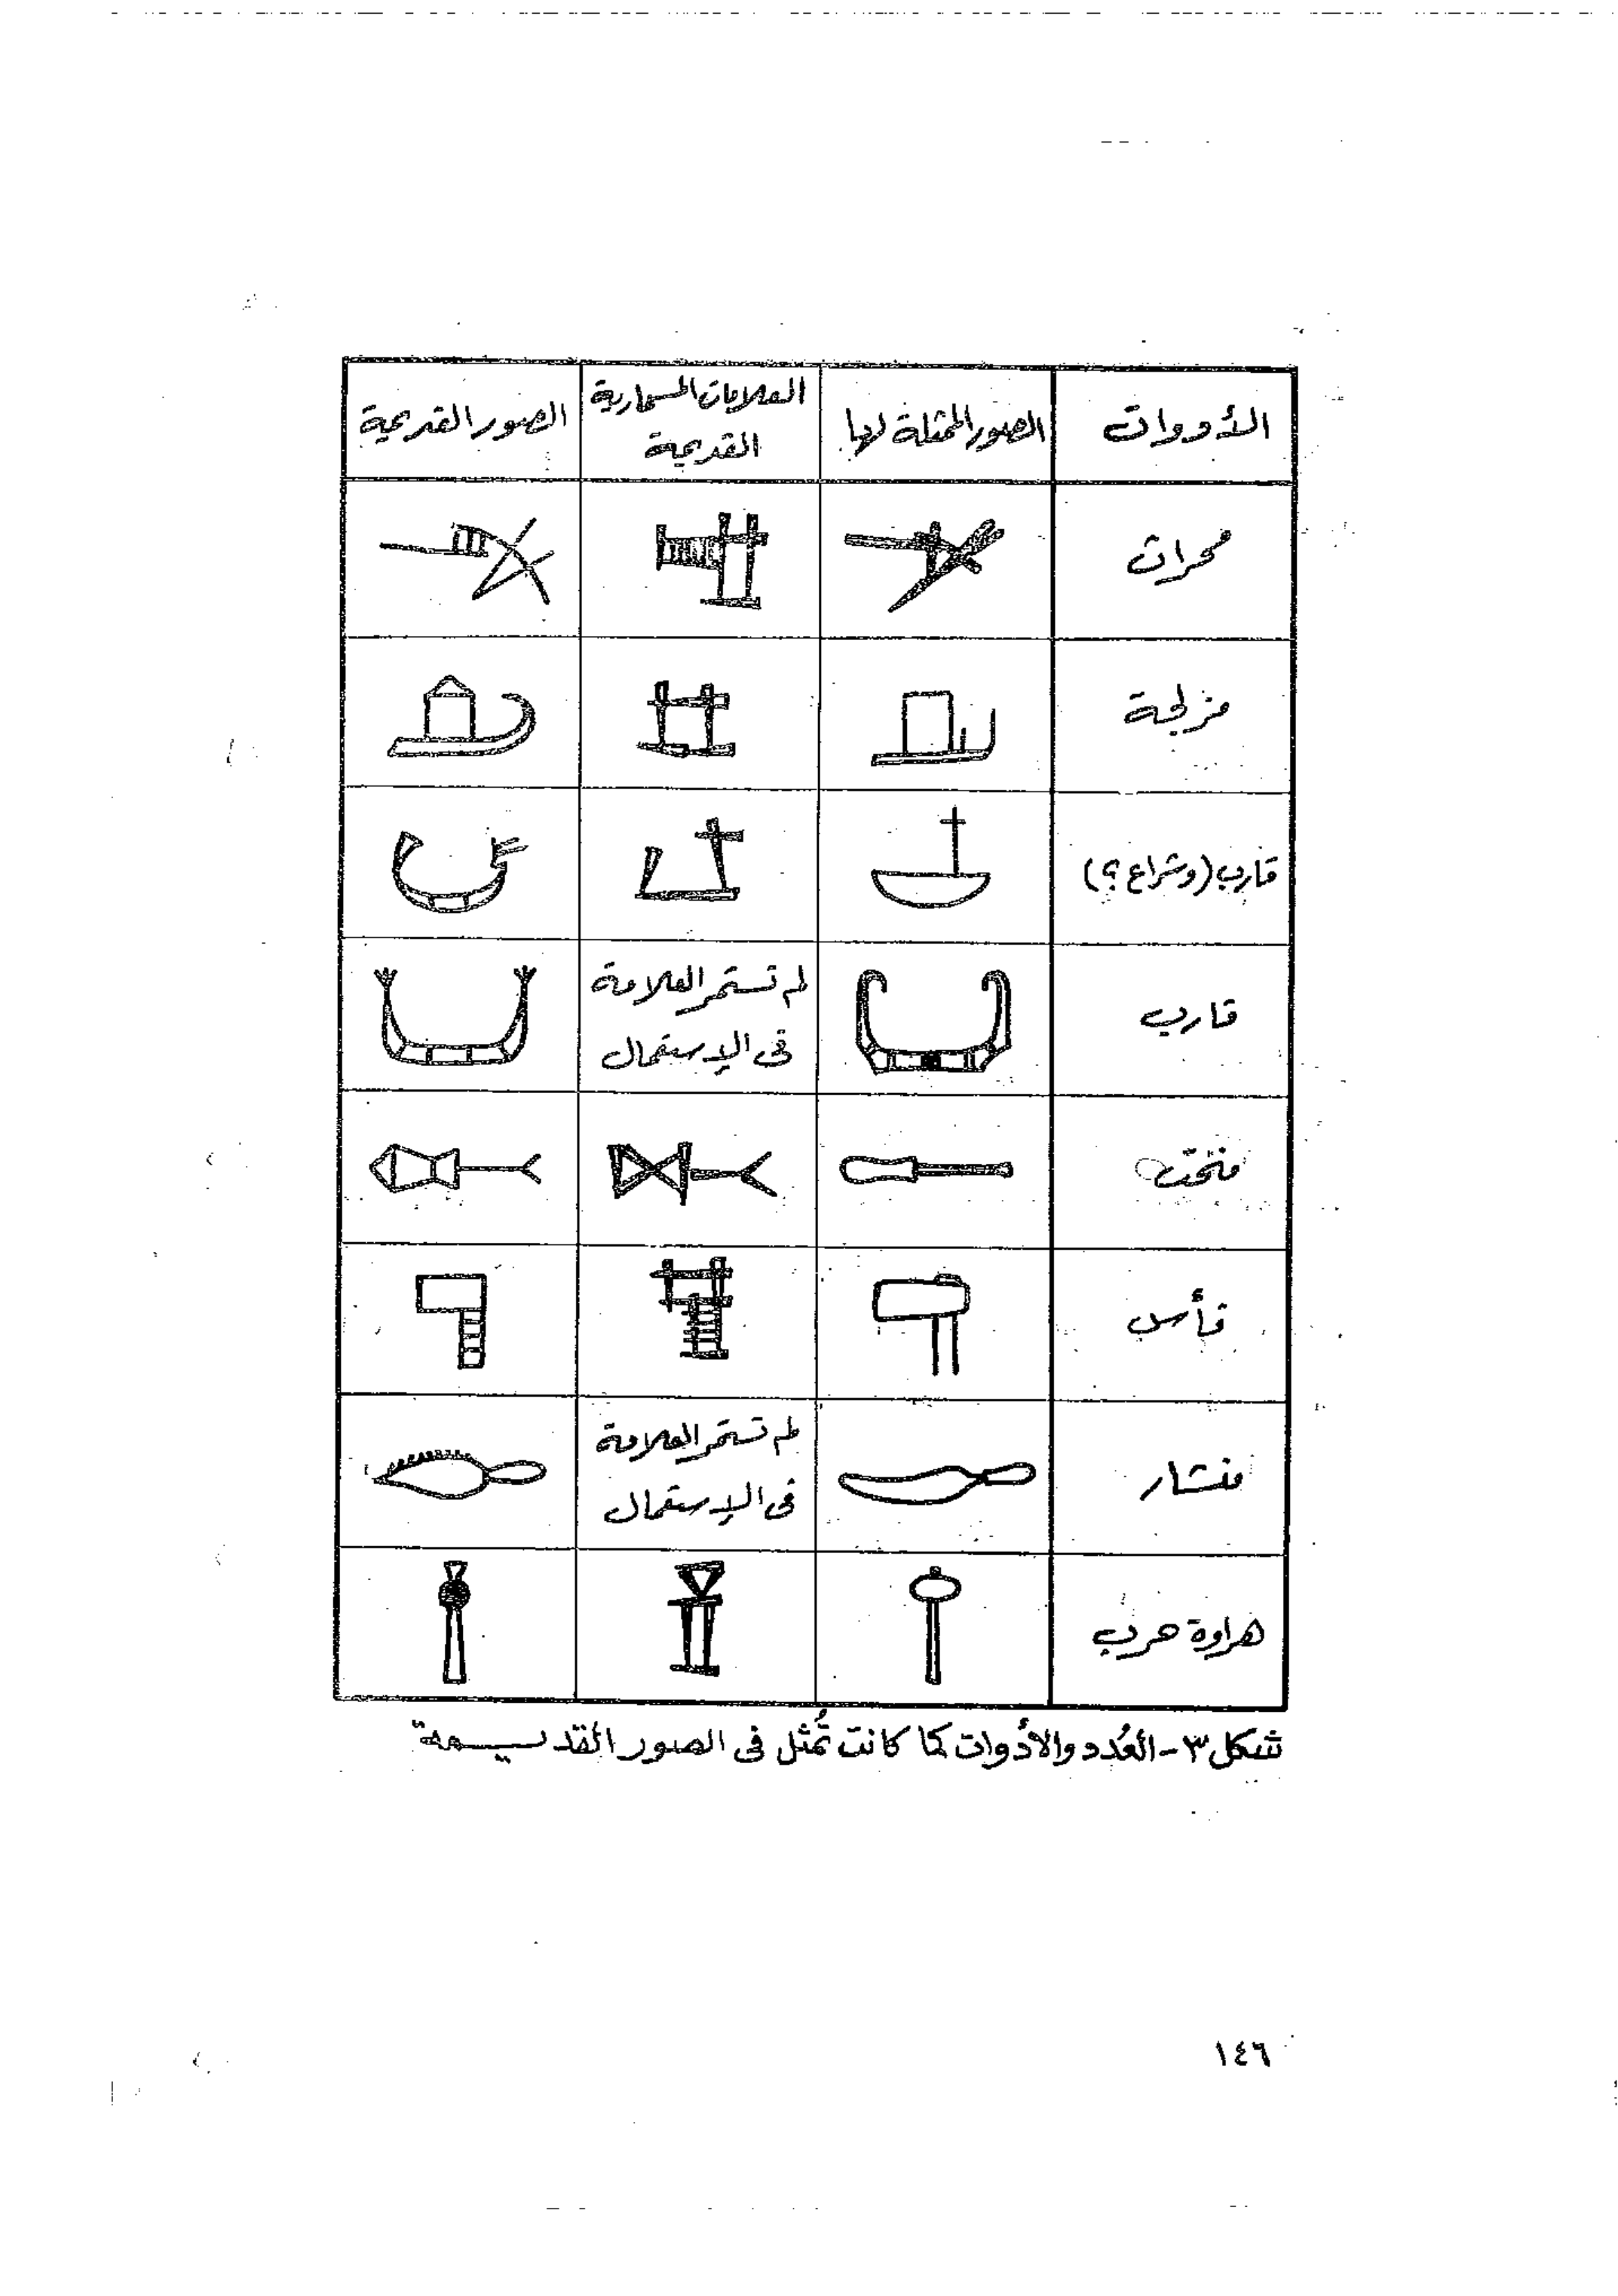 الأدوات
الصور الممثلة لها
العلامات المسمارية
القديمة
الصور القديمة
محراث
مزلجة
قارب (وشراع ؟)
قارب
لم تستمر العلامة
فى الإستعمال
منحت
فأس
منشار
لم تستمر العلامة
فى الإستعمال
هراوة حرب
شكل ٣ - العُدد والأدوات كما كانت تُمثل فى الصور القديمة
١٤٦